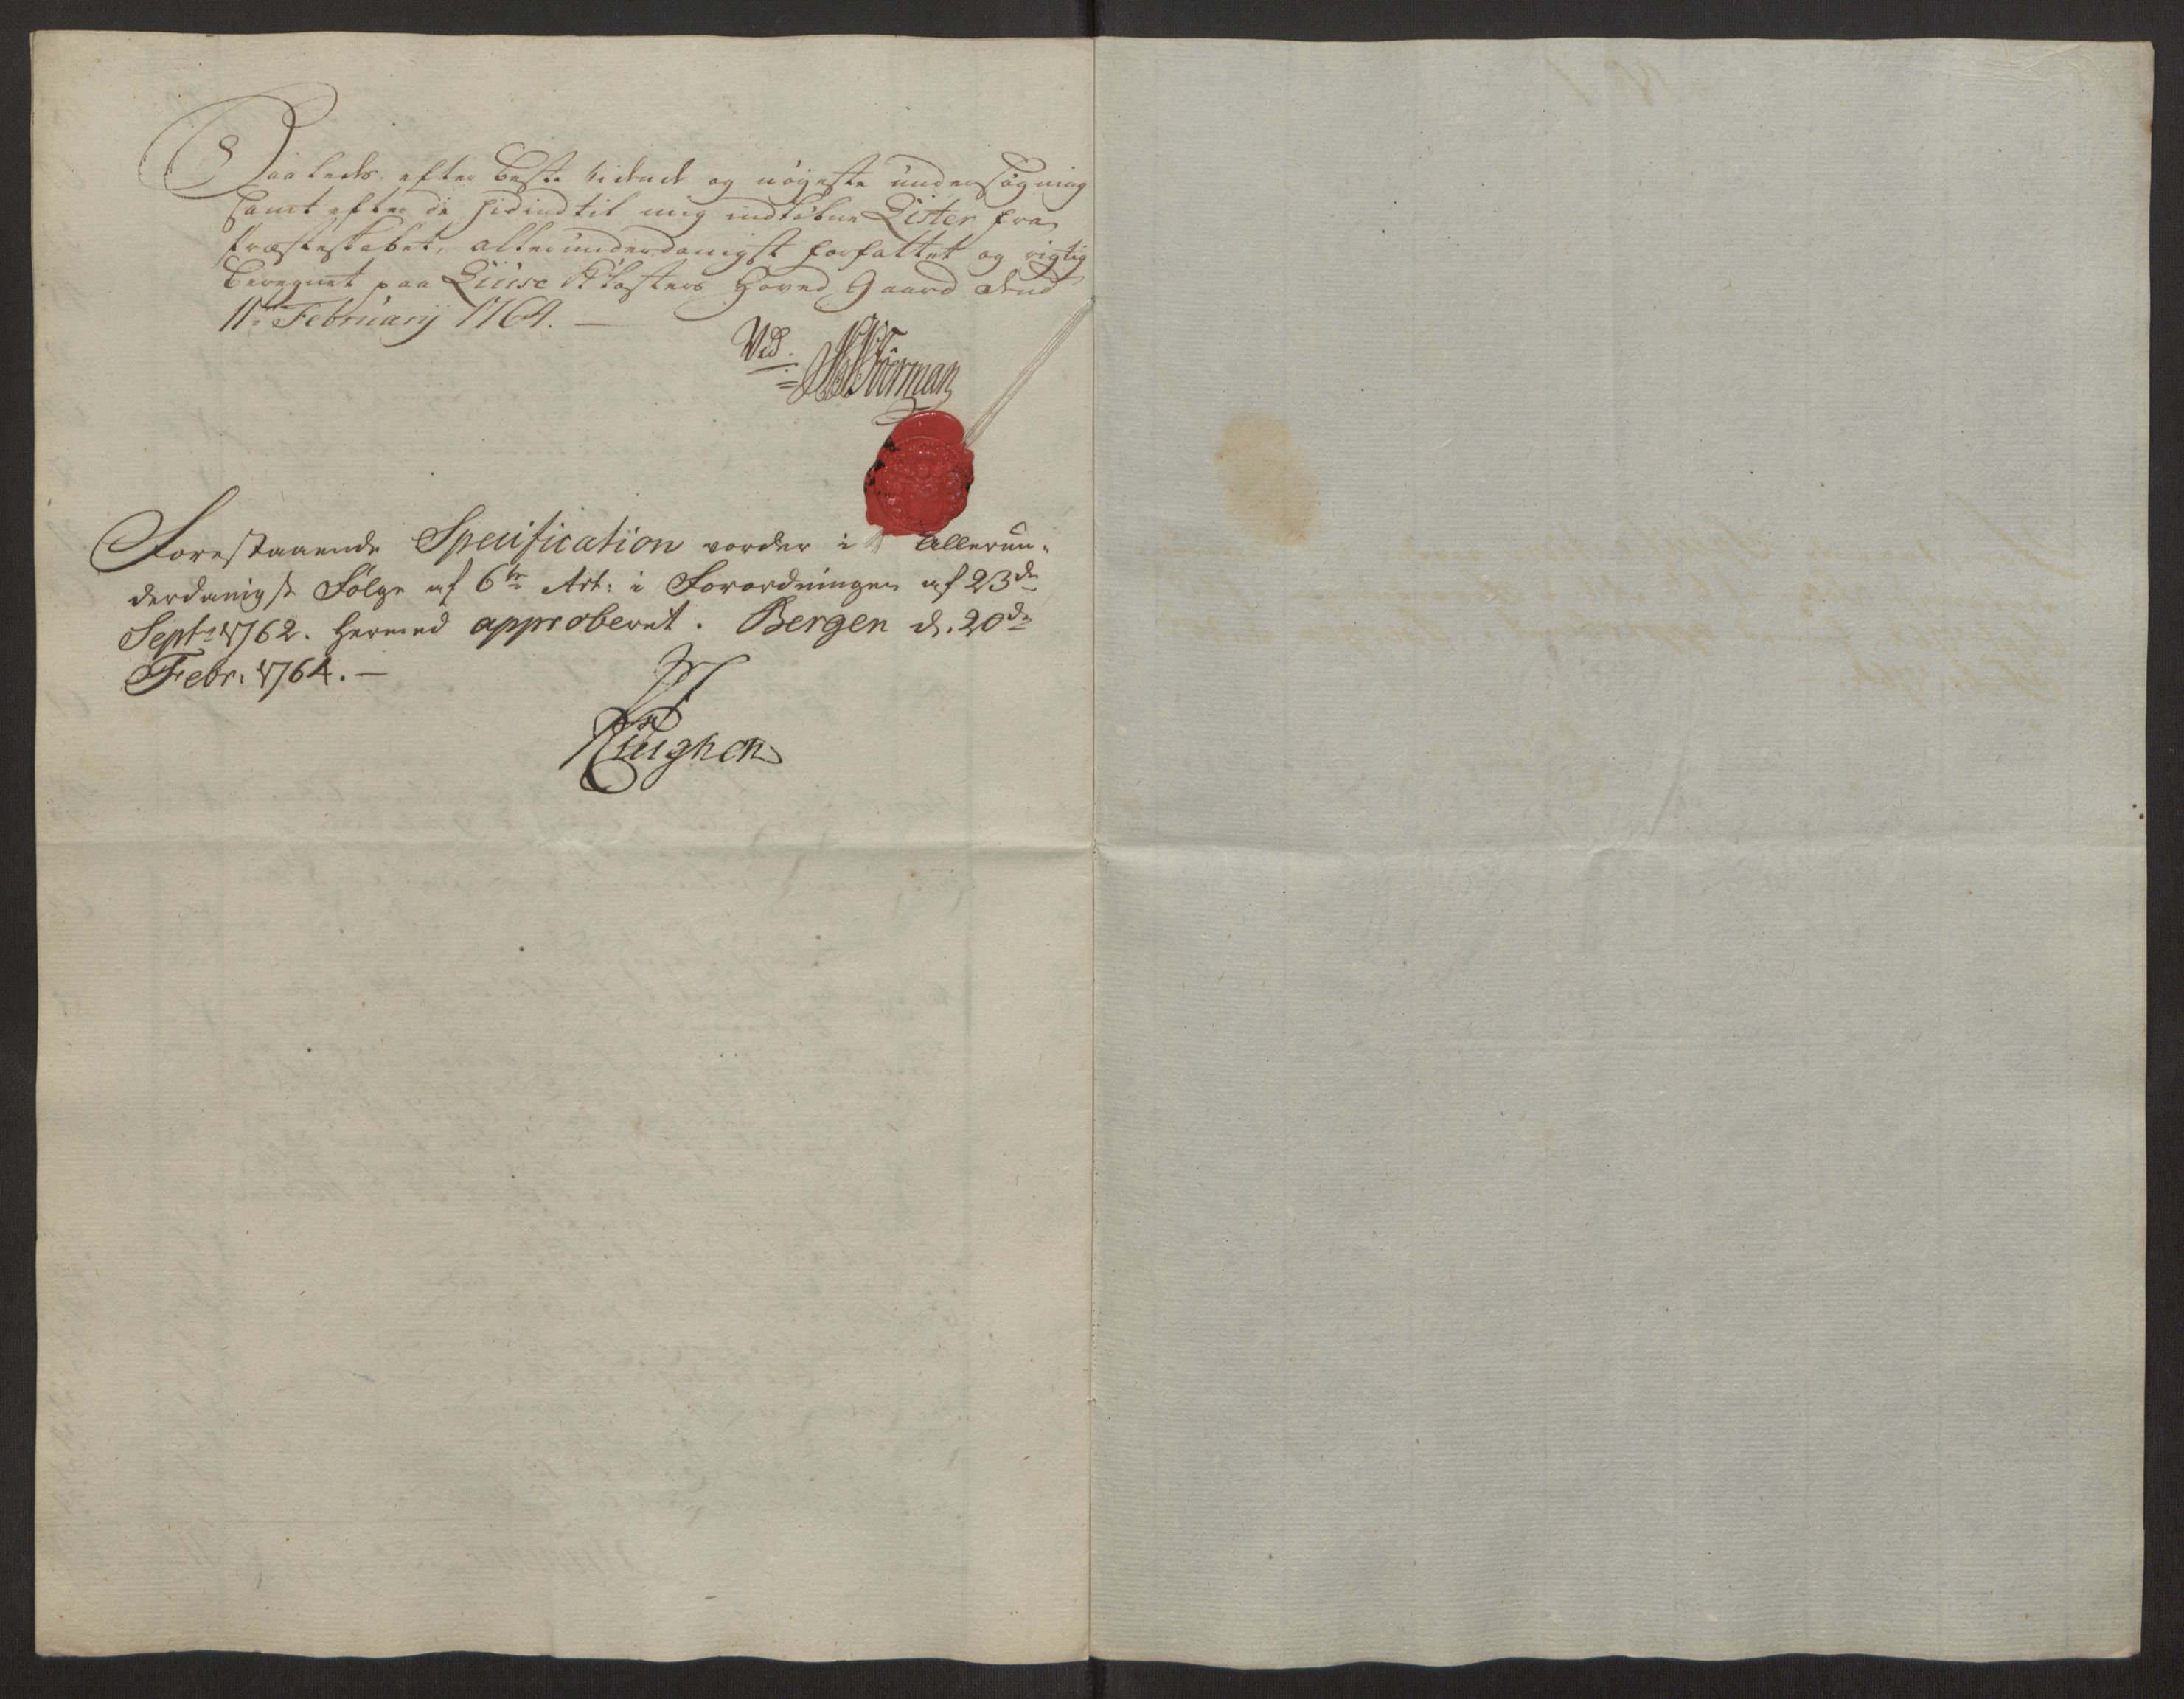 Saaledes efter beste vidende og nøyeste undersøgning
samt efter de hidindtil mig indkobne Lister fra
Præsteskabet, allerunderdanigst forfattet og rigtig
beregnet paa Lüüse Klosters Hoved Gaard dend
11te February 1764. —
Vid.
Forman
Forestaaende Specification vorder i Allerun-
derdanigst Følge af 6te Art: i Forordningen af 23de
Septr 1762. hermed approberet. Bergen d. 20de
Febr. 1764. —